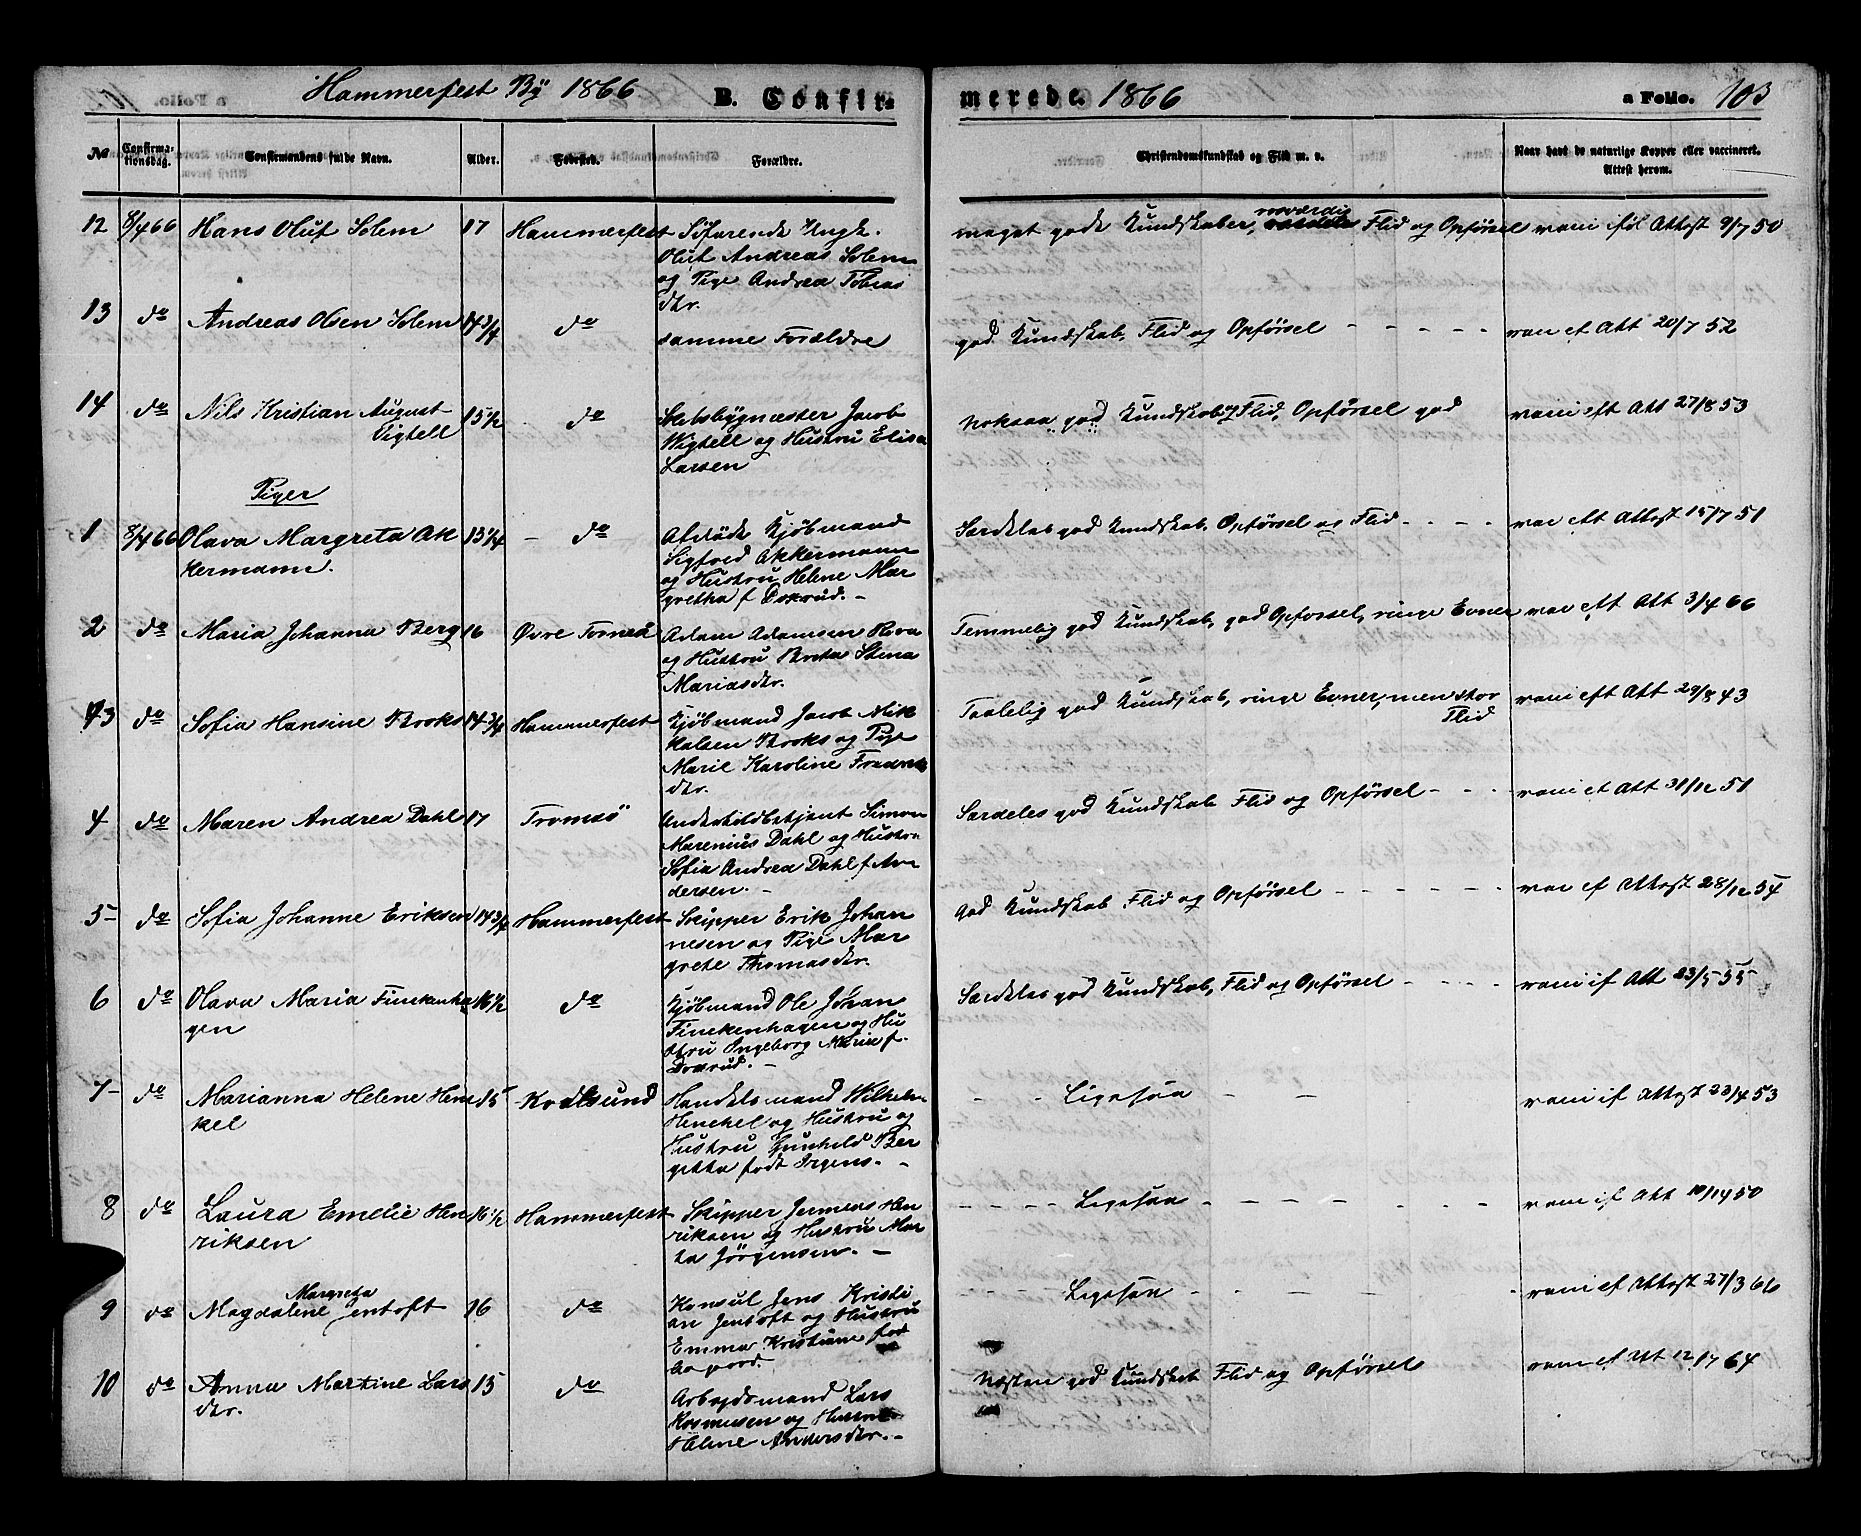 Hammerfest By 1866 B. Confir- merede. 1866 a Folio. 103
No Confirma-tionsdag. Confirmandens fulde Navn. Alder. Fødested. Forældre. Christendomskundskab og Flid m. v. Naar havt de naturlige Kopper eller vaccineret. Attest herom.
12 8/4 66 Hans Oluf Solem 17 Hammerfest Søfarende Ungk. meget gode Kundskaber, Flid og Opførsel vacc iføl Attest 9/7 50
Oluf Andreas Solem
og Pige Andrea Tobias
dtr.
13 do Andreas Olsen Solem 14 3/4 do samme Forældre god Kundskab, Flid og Opførsel vacc ef Att 20/7 52
14 do Nils Kristian August Vigtell 15 1/2 do Skibsbygmester Jacob noksaa god Kundskab og Flid, Opførsel god vacc eft Att 27/8 53
Wigtell og Hustru Elisa
Larsen
Piger
1 8/4 66 Olava Margreta Ak 15 1/4 do Afdøde Kjøbmand Særdeles god Kundskab, Opførsel og Flid vac eft Attest 15/7 51
kermann. Sigfred Akkermann
og Hustru Helene Mar
gretha f
2 do Maria Johanna Berg 16 Øvre Torneå Adam Adamsen Temmelig god Kundskab, god Opførsel, ringe Evner vac eft Att 3/4 66
og Hustru Breta Stena
Mariasdtr.
3 do Sofia Hansine Brooks 14 3/4 Hammerfest Kjøbmand Jacob Nik Taalelig god Kundskab, ringe Evner, men stor Flid vacc eft Att 29/8 43
kolsen Brooks og Pige
Marie Karoline Fredriks
dtr.
4 do Maren Andrea Dahl 17 Tromsø Simon Særdeles god Kundskab Flid og Opførsel vacc ef Att 31/12 51
Marenius Dahl og Hustru
Sofia Andrea Dahl f An
dersen.
5 do Sofia Johanne Eriksen 14 3/4 Hammerfest Skipper Erik Johan God Kundskab Flid og Opførsel vac ef Attest 28/12 54
nesen og Pige Mar
grete Thomasdtr.
6 do Olava Maria Finckenha 16 1/2 do Kjøbmand Ole Johan Særdeles god Kundskab, Flid og Opførsel vacc if Att 23/5 55
gen Finckenhagen og Hu
stru Ingeborg Maria f.
7 do Marianna Helene Hen 15 Kvalsund Handelsmand Wilhelm Ligesaa vacc if Attest 23/4 53
kel Henckel og Hustru og
Hustru Gunhild Ber
githa født Irgens.
8 do Laura Emelie Hen 16 1/2 Hammerfest Skipper Jermias Hen Ligesaa vacc if Att 50
riksen riksen og Hustru Mar
ta Jørgensen.
9 do Magdalene Margreta Jentoft 16 do Konsul Jens Kristi Ligesaa vacc ef Attest 27/3 66
an Jentoft og Hustru
Emma Kristiane fød
10 do Anna Martine Lars 15 do Arbeidsmand Lars Næsten god Kundskab Flid og Opførsel vacc ef Att 12/7 64
dtr. Rasmusen og Hustru
Helene Andersdtr.